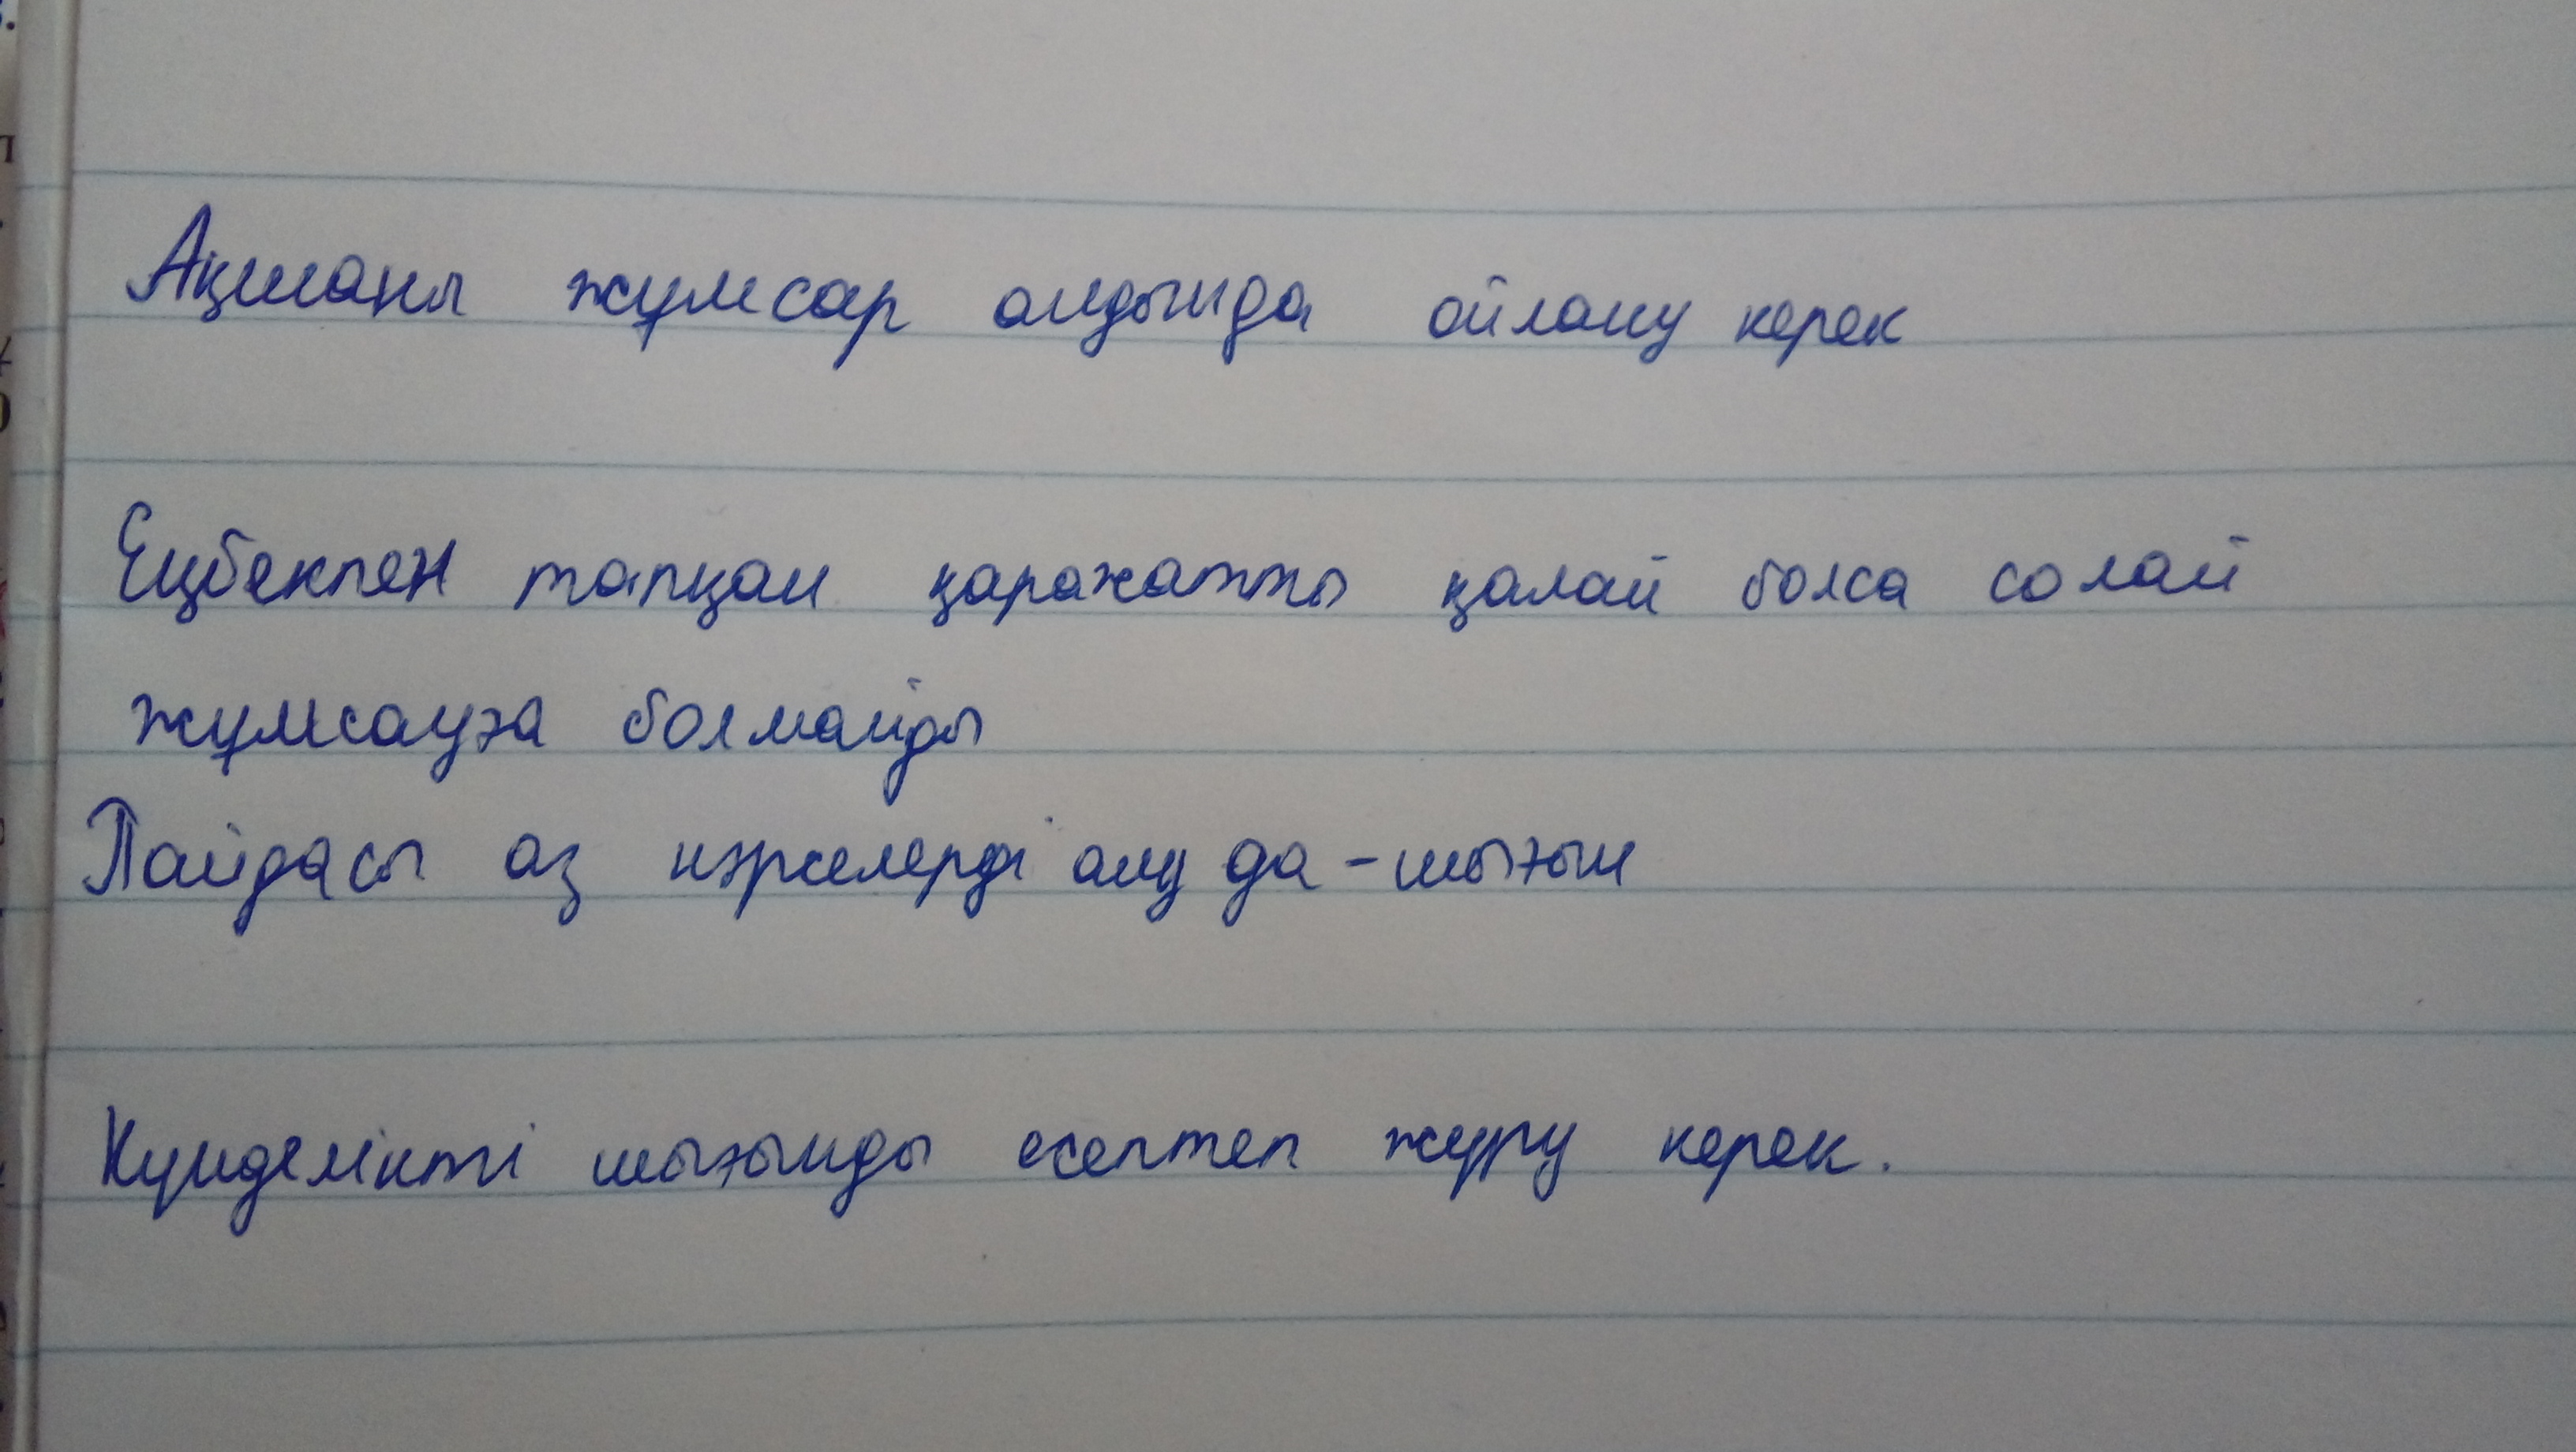 Ақшаны жұмсар алдында ойлану керек
Еңбекпен тапқан қаражатты қалай болса солай
жұмсауға болмайды
Пайдасы аз нәрселерді алу да - шығын
Күнделікті шығынды есептеп жүру керек.